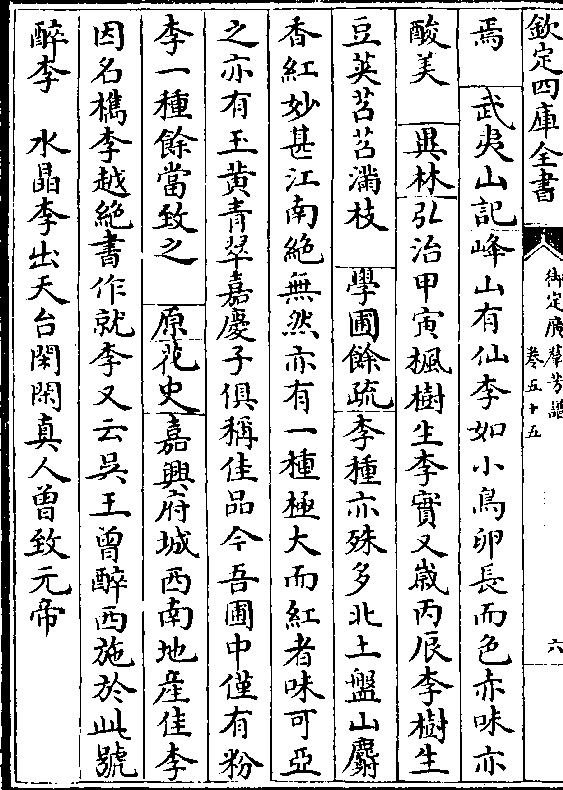 欽定四庫全書
御定廣羣芳譜
卷五十五
六
焉 武夷山記峰山有仙李如小鳥卵長而色赤味亦
酸美 異林弘治甲寅楓樹生李實又嵗丙辰李樹生
豆莢苕苕滿枝 學圃餘疏李種亦殊多北土盤山麝
香紅妙甚江南絶無然亦有一種極大而紅者味可亞
之亦有玉黄青翠嘉慶子俱稱佳品今吾圃中僅有粉
李一種餘當致之 原花史嘉興府城西南地産佳李
因名檇李越絶書作就李又云吳王曾醉西施於此號
醉李 水晶李出天台閑閑真人曾致元帝